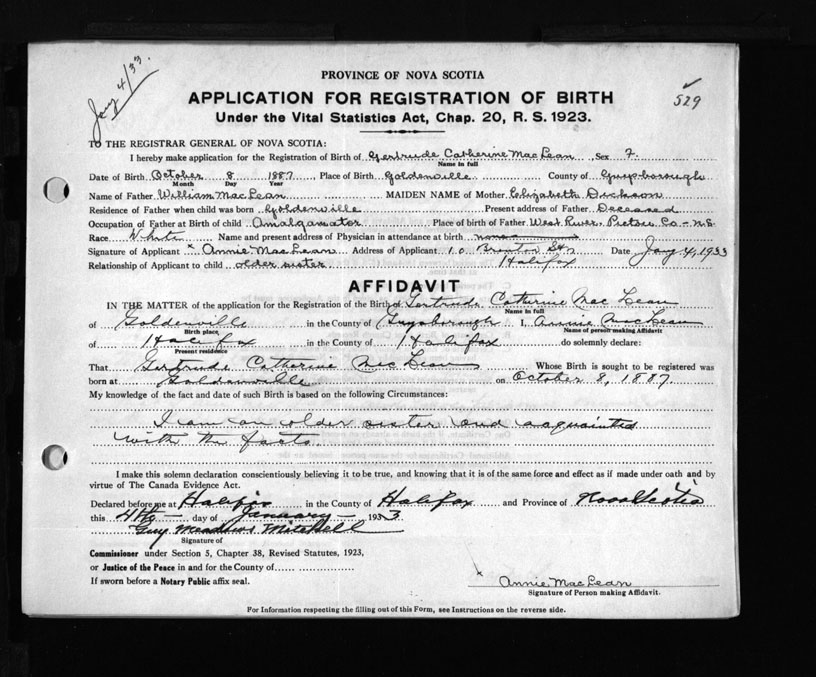 Jay 4/33.
529
PROVINCE OF NOVA SCOTIA
APPLICATION FOR REGISTRATION OF BIRTH
Under the Vital Statistics Act, Chap. 20, R. S. 1923.
TO THE REGISTRAR GENERAL OF NOVA SCOTIA:
I hereby make application for the Registration of Birth of Gertrude Catherine MacLean Sex F.
Name in full
Date of Birth October 8 1887 Place of Birth Goldenville County of Guysborough
Month Day Year
Name of Father William MacLean MAIDEN NAME of Mother Elizabeth Dickson
Residence of Father when child was born Goldenville Present address of Father Deceased
Occupation of Father at Birth of child Amalgamator Place of birth of Father West River, Pictou Co - N.S
Race White Name and present address of Physician in attendance at birth
Signature of Applicant x Annie MacLean Address of Applicant 10 Brenton St, Date Jay 4, 1933
Relationship of Applicant to child older sister Halifax
AFFIDAVIT
IN THE MATTER of the application for the Registration of the Birth of Gertrude Catherine MacLean
Name in full
of Goldenville in the County of Guysborough I, Annie MacLean
Birth place Name of person making Affidavit
of Halifax in the County of Halifax do solemnly declare:
Present residence
That Gertrude Catherine MacLean Whose Birth is sought to be registered was
born at Goldenville on October 8, 1887.
My knowledge of the fact and date of such Birth is based on the following Circumstances:
I am an older sister and acquainted
with the facts.
I make this solemn declaration conscientiously believing it to be true, and knowing that it is of the same force and effect as if made under oath and by
virtue of The Canada Evidence Act.
Declared before me at Halifax in the County of Halifax and Province of Nova Scotia
this 4th day of January 1933
Guy Meadows Mitchell
Signature of
Commissioner under Section 5, Chapter 38, Revised Statutes, 1923,
or Justice of the Peace in and for the County of
If sworn before a Notary Public affix seal.
x Annie MacLean
Signature of Person making Affidavit.
For Information respecting the filling out of this Form, see Instructions on the reverse side.